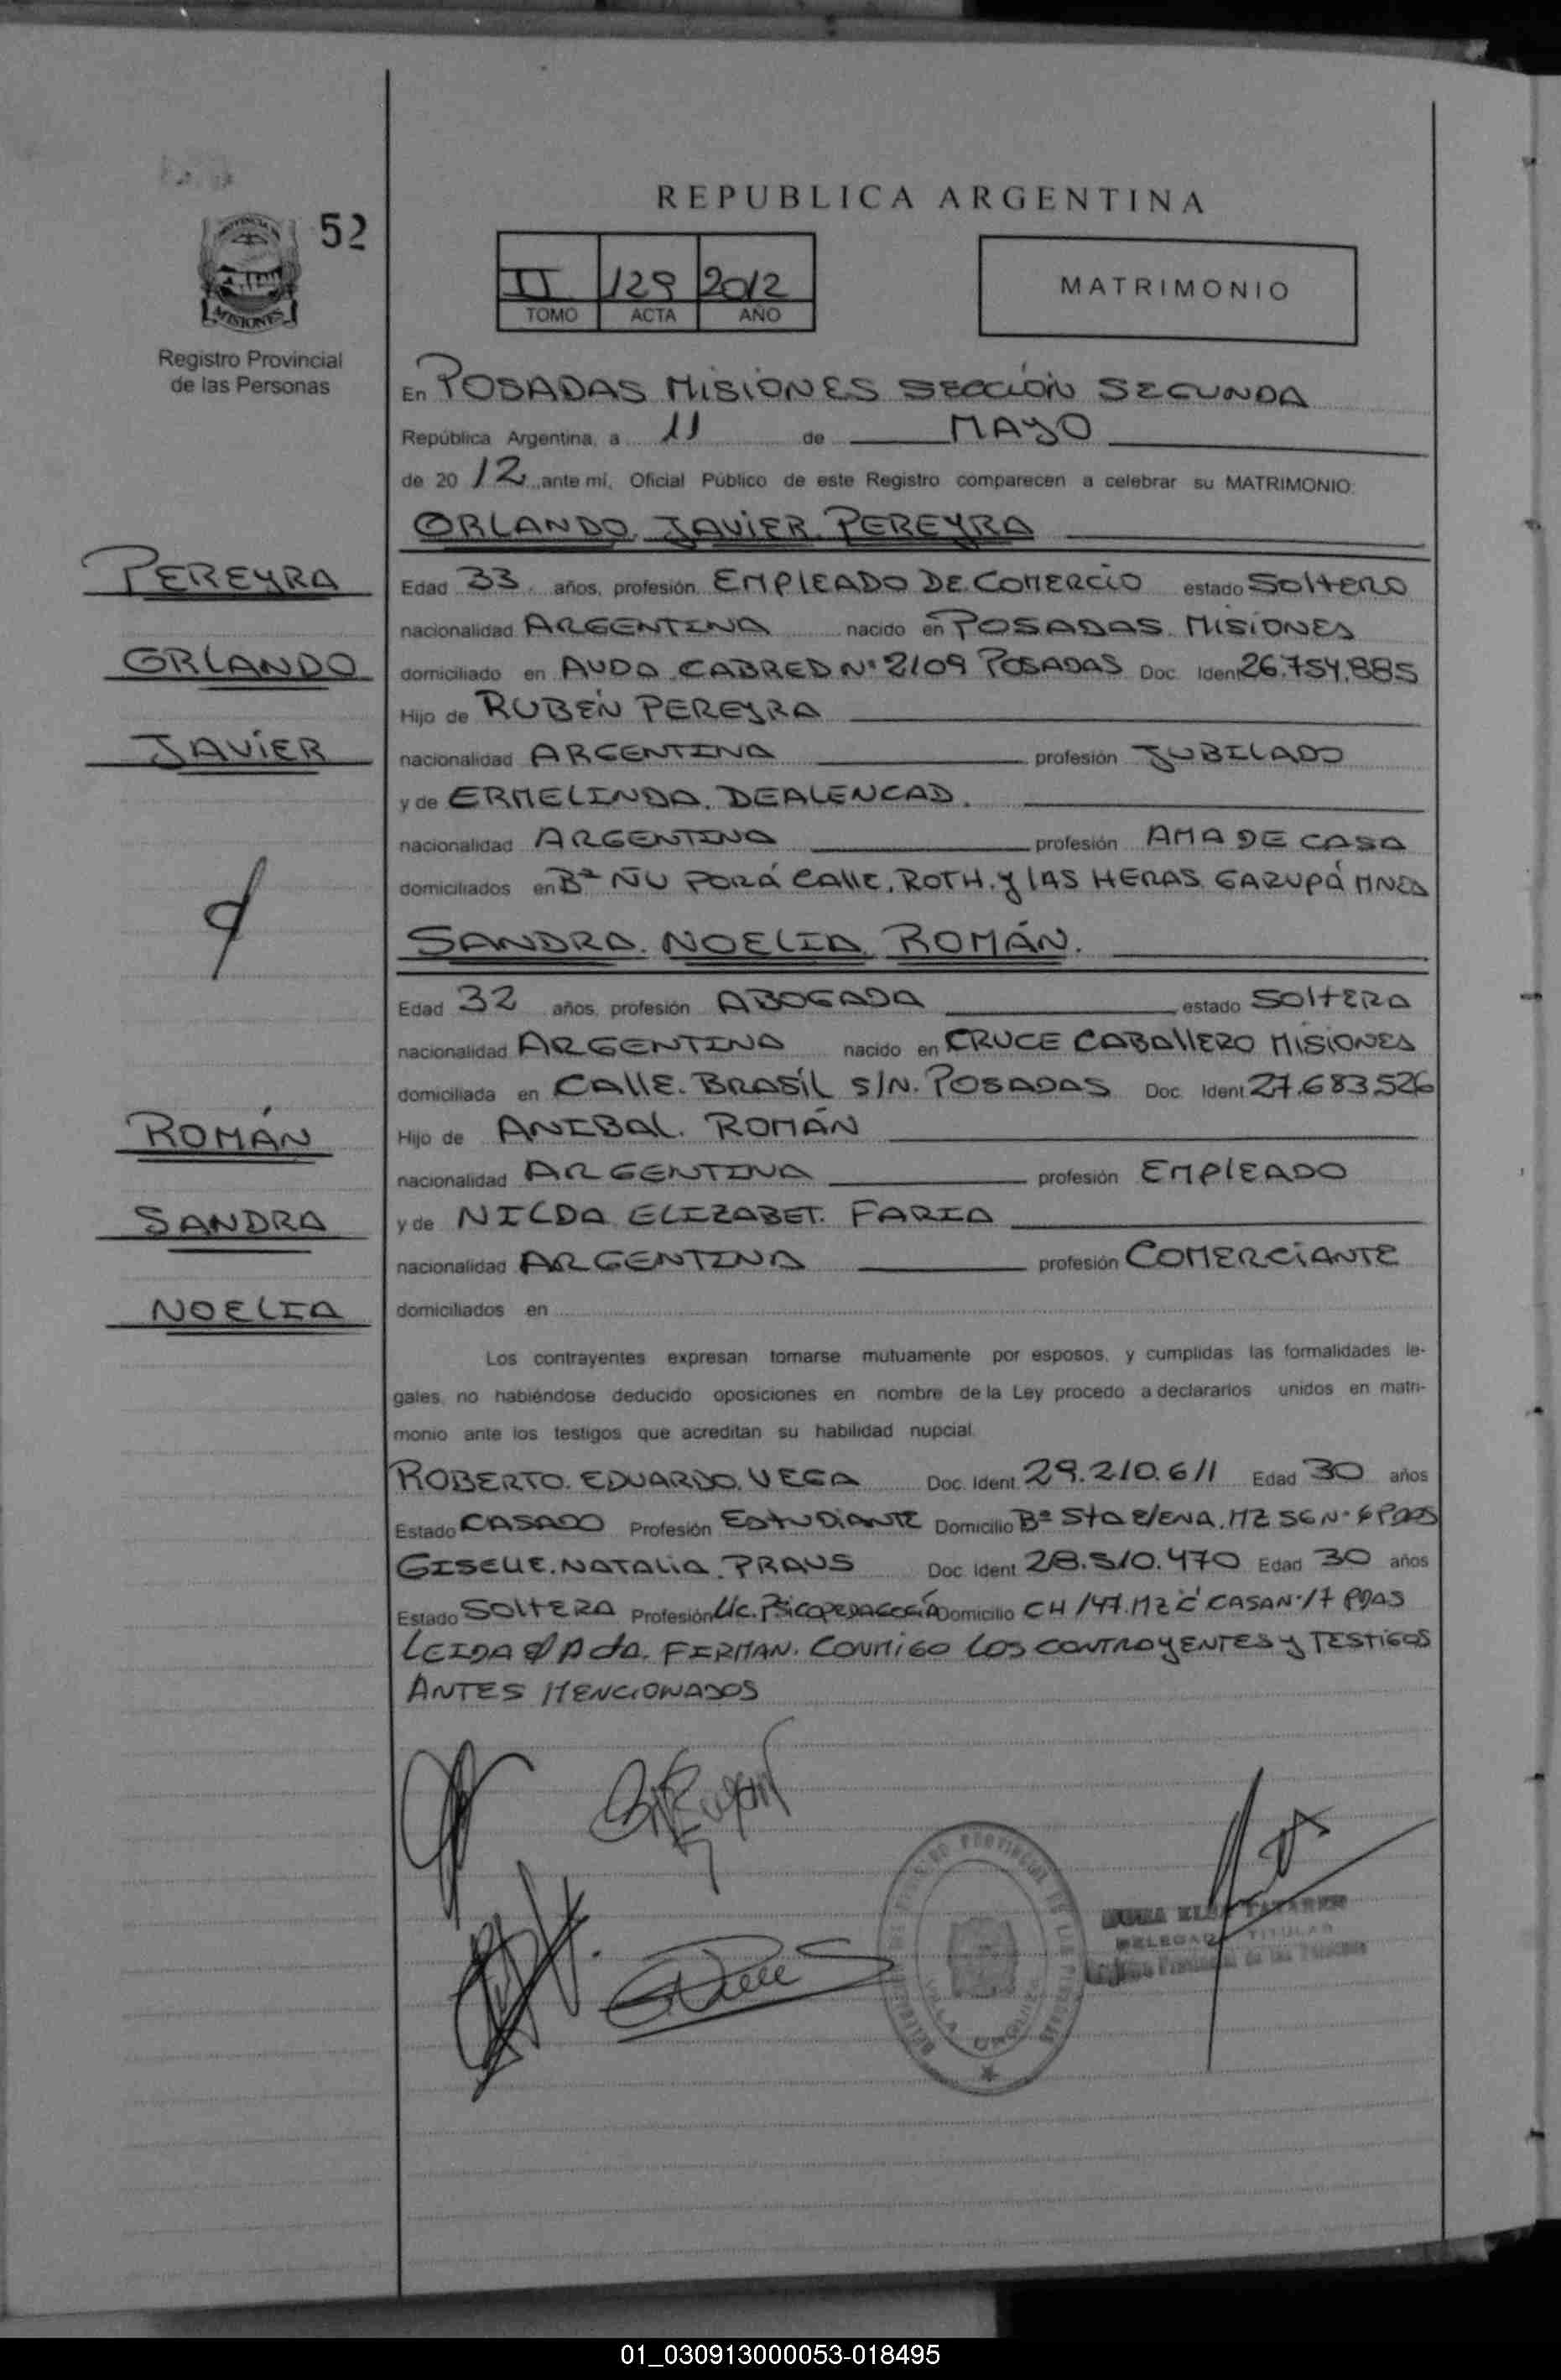 REPUBLICA ARGENTINA
52
II 129 2012
TOMO ACTA AÑO
MATRIMONIO
MISIONES
Registro Provincial
de las Personas
En POSADAS MISIONES SECCIÓN SEGUNDA
República Argentina, a 11 de MAYO
de 2012 ante mí, Oficial Público de este Registro comparecen a celebrar su MATRIMONIO:
ORLANDO. JAVIER. PEREYRA
PEREYRA
ORLANDO
JAVIER
Edad 33. años, profesión EMPLEADO DE COMERCIO estado SOLTERO
nacionalidad ARGENTINA nacido en POSADAS. MISIONES
domiciliado en AVDA. CABRED Nº 2109 POSADAS Doc. Ident 26.754.885
Hijo de RUBÉN PEREYRA
nacionalidad ARGENTINA profesión JUBILADO
y de ERMELINDA. DEALENCAD.
nacionalidad ARGENTINA profesión AMA DE CASA
domiciliados en Bº ÑU PORÁ CALLE. ROTH. y LAS HERAS GARUPÁ MNES
SANDRA. NOELIA. ROMÁN.
Edad 32 años, profesión ABOGADA estado SOLTERA
nacionalidad ARGENTINA nacido en CRUCE CABALLERO MISIONES
domiciliada en CALLE. BRASÍL S/N. POSADAS Doc. Ident 27.683.526
ROMÁN
SANDRA
NOELIA
Hijo de ANIBAL. ROMÁN
nacionalidad ARGENTINA profesión EMPLEADO
y de NILDA ELIZABET. FARIA
nacionalidad ARGENTINA profesión COMERCIANTE
domiciliados en
Los contrayentes expresan tomarse mutuamente por esposos, y cumplidas las formalidades le-
gales, no habiéndose deducido oposiciones en nombre de la Ley procedo a declararlos unidos en matri-
monio ante los testigos que acreditan su habilidad nupcial.
ROBERTO. EDUARDO. VEGA Doc. Ident. 29.210.611 Edad 30 años
Estado CASADO Profesión ESTUDIANTE Domicilio Bº STA ELENA. MZ 56 Nº 6 PDAS
GISELLE. NATALIA. PRAUS Doc. Ident 28.510.470 Edad 30 años
Estado SOLTERA Profesión Lic. PSICOPEDAGOGÍA Domicilio CH 147. MZ "C" CASA Nº 17 PDAS
LEIDA El Acta. FIRMAN. CONMIGO LOS CONTRAYENTES y TESTIGOS
ANTES MENCIONADOS
REGISTRO PROVINCIAL DE LAS PERSONAS
VILLA URQUIZA
TITULAR
Provincial de las Personas
01_030913000053-018495